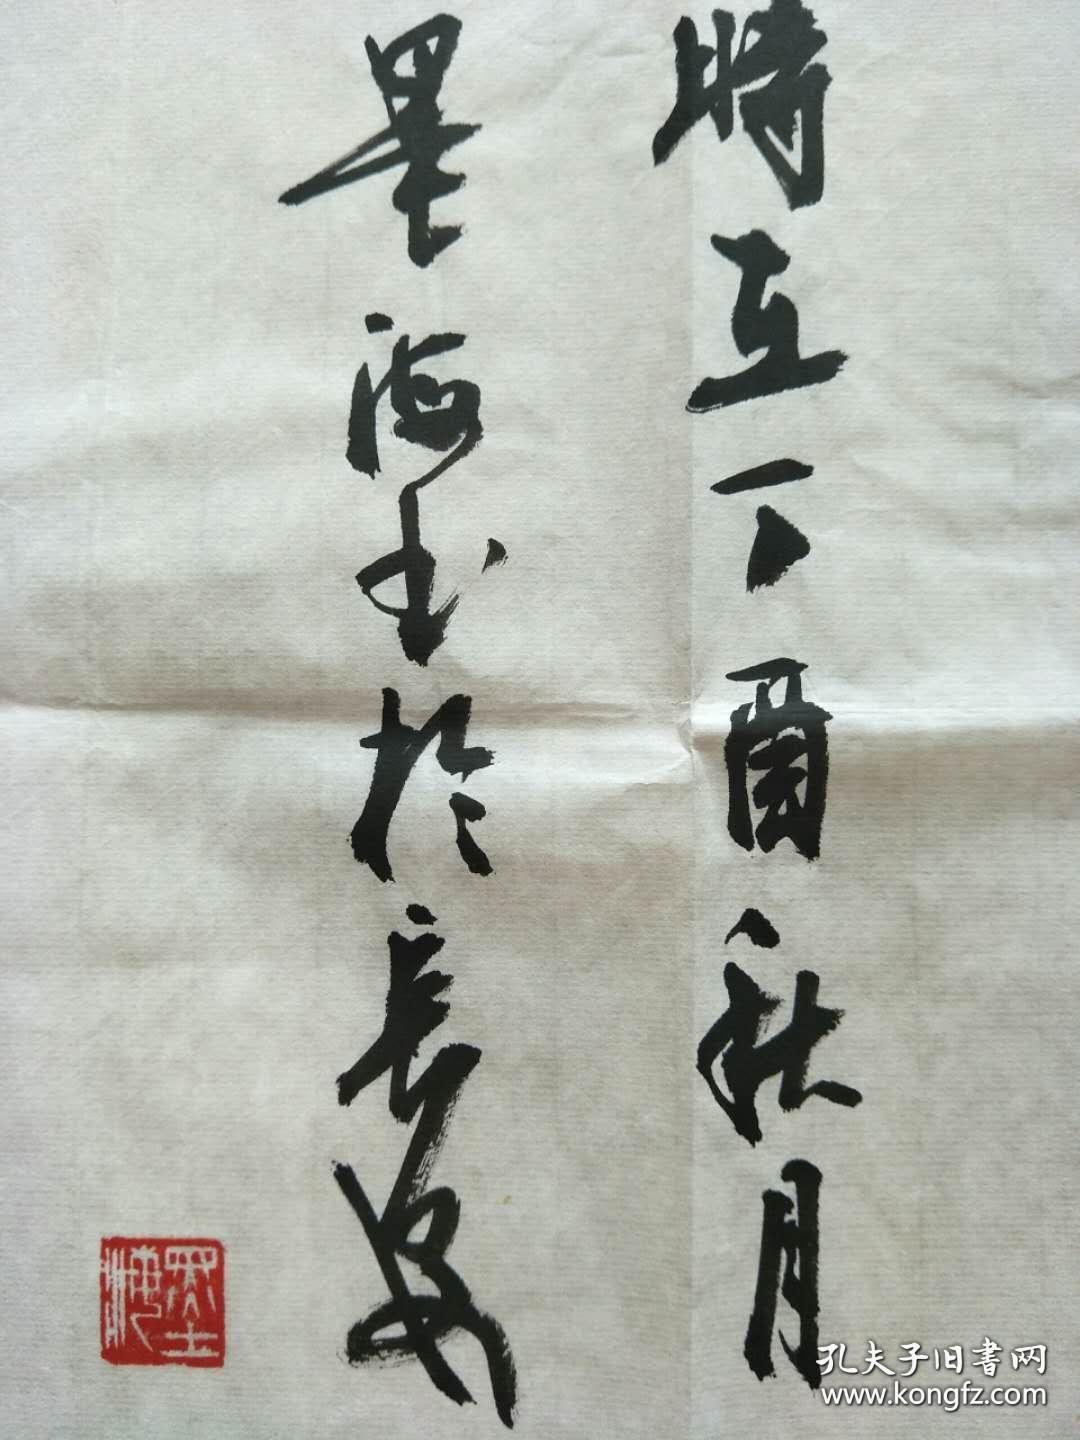 時在丁酉秋月
墨海書於長安
墨海
孔夫子旧書网
www.kongfz.com